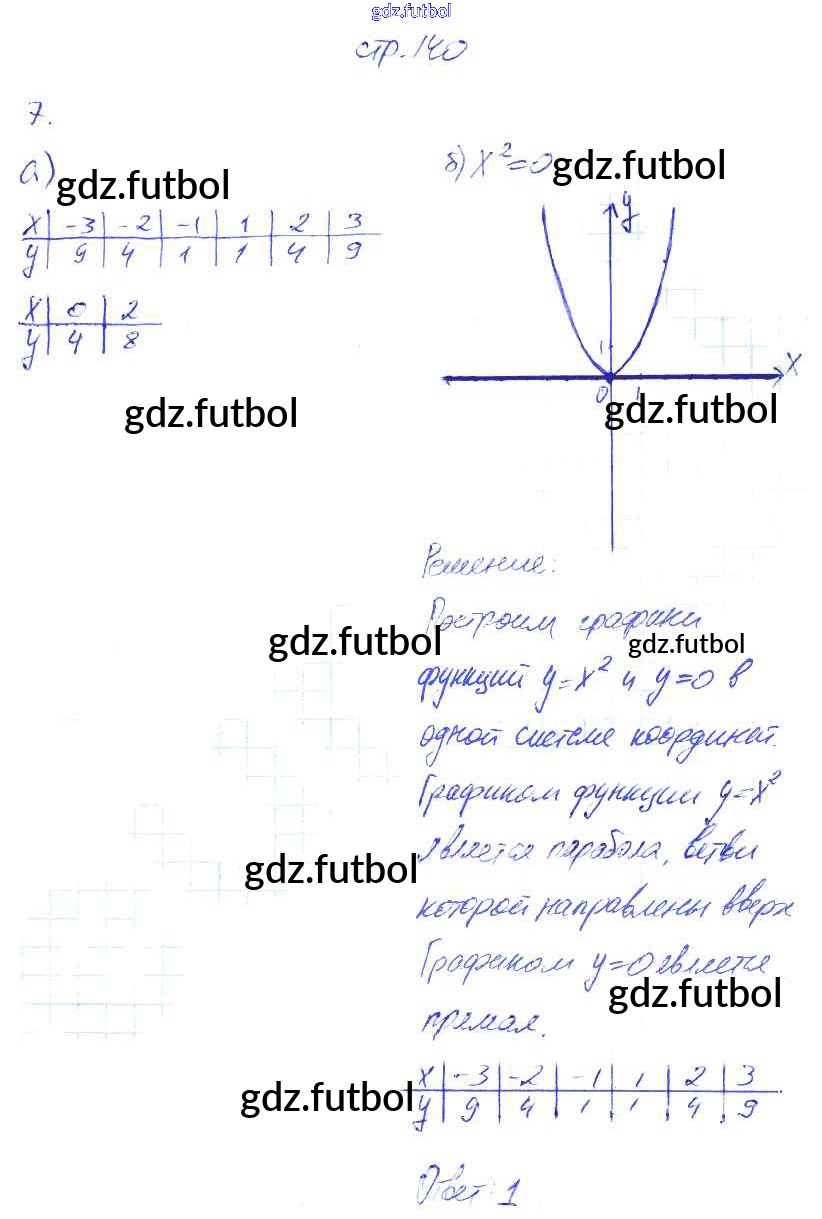 gdz.futbol
стр. 140
7.
а)
gdz.futbol
x | -3 | -2 | -1 | 1 | 2 | 3
y | 9 | 4 | 1 | 1 | 4 | 9
x | 0 | 2
y | 4 | 8
gdz.futbol
б) x²=0
gdz.futbol
y
1
x
0 1
gdz.futbol
Решение:
Построим графики
gdz.futbol
gdz.futbol
функций y=x² и y=0 в
одной системе координат.
Графиком функции y=x²
является парабола, ветви
gdz.futbol
которой направлены вверх
Графиком y=0 является
gdz.futbol
прямая.
x | -3 | -2 | -1 | 1 | 2 | 3
y | 9 | 4 | 1 | 1 | 4 | 9
gdz.futbol
Ответ: 1